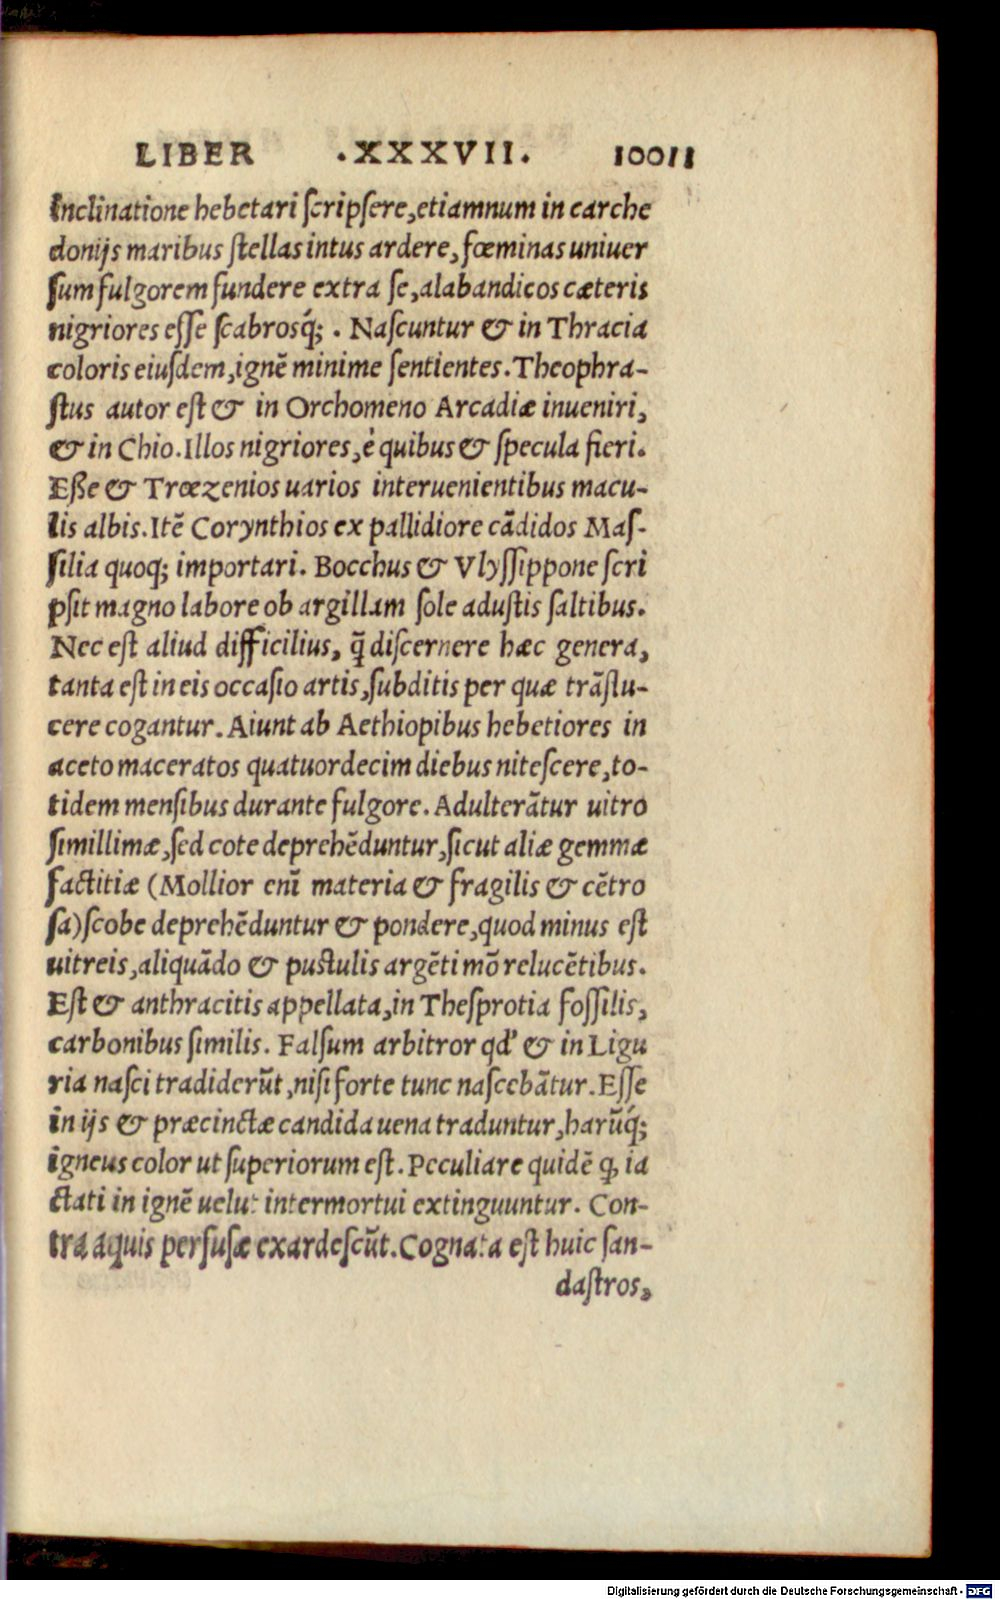 LIBER .XXXVII. 10011
Inclinatione hebetari ſcripſere,etiamnum in carche
donijs maribus ſtellas intus ardere, fœminas uniuer
ſum fulgorem fundere extra ſe,alabandicos cæteris
nigriores eſſe ſcabrosq́; . Naſcuntur & in Thracia
coloris eiuſdem,ignē minime ſentientes.Theophra-
ſtus autor eſt & in Orchomeno Arcadiæ inueniri,
& in Chio.Illos nigriores,è quibus & ſpecula fieri.
Eße & Trœzenios uarios interuenientibus macu-
lis albis.Itē Corynthios ex pallidiore cādidos Maſ-
ſilia quoq; importari. Bocchus & Vlyſſippone ſcri
pſit magno labore ob argillam ſole aduſtis ſaltibus.
Nec eſt aliud difficilius, q̄ diſcernere hæc genera,
tanta eſt in eis occaſio artis,ſubditis per quæ trāſlu-
cere cogantur. Aiunt ab Aethiopibus hebetiores in
aceto maceratos quatuordecim diebus niteſcere,to-
tidem menſibus durante fulgore. Adulterātur uitro
ſimillimæ,ſed cote deprehēduntur,ſicut aliæ gemmæ
factitiæ (Mollior enī materia & fragilis & cētro
ſa)ſcobe deprehēduntur & pondere,quod minus eſt
uitreis,aliquādo & puſtulis argēti mō relucētibus.
Eſt & anthracitis appellata,in Theſprotia foſſilis,
carbonibus ſimilis. Falſum arbitror qd' & in Ligu
ria naſci tradiderūt,niſi forte tunc naſcebātur.Eſſe
in ijs & præcinctæ candida uena traduntur,harūq́;
igneus color ut ſuperiorum eſt. Peculiare quidē ꝙ ia
ctati in ignē uelut intermortui extinguuntur. Con-
tra aquis perſuſæ exardeſcūt.Cognata eſt huic ſan-
daſtros,
Digitalisierung gefördert durch die Deutsche Forschungsgemeinschaft - DFG